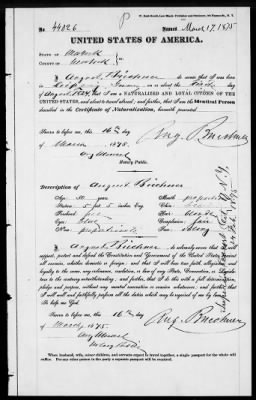 No. 44026
Issued March 17, 1875
UNITED STATES OF AMERICA.
STATE OF New York
COUNTY OF New York } ss.
I August Büchner do swear that I was born
in Germany on or about the
day of August 1824, that I am a NATURALIZED AND LOYAL CITIZEN OF THE
UNITED STATES, and about to travel abroad; and further, that I am the Identical Person
described in the Certificate of Naturalization, herewith presented
Sworn to before me, this 16th day
of March 1875.
Notary Public.
Aug. Buechner
Description of August Büchner
Age: 50 years
Mouth: proportionate
Stature: 5 feet 5 inches, Eng.
Chin:
Forehead: free
Hair: blonde
Eyes: blue
Complexion: fair
Nose: proportionate
Face: oblong
I August Büchner do solemnly swear that I will
support, protect and defend the Constitution and Government of the United States against
all enemies, whether domestic or foreign; and that I will bear true faith, allegiance and
loyalty to the same, any ordinance, resolution, or law of any State, Convention, or Legislature
to the contrary notwithstanding; and further, that I do this with a full determination,
pledge and purpose, without any mental reservation or evasion whatsoever; and further,
that I will well and faithfully perform all the duties which may be required of me by law.
So Help Me God.
Sworn to before me, this 16th day
of March, 1875.
Notary Public
Aug. Buechner
When husband, wife, minor children, and servants expect to travel together, a single passport for the whole will
suffice. For any other person in the party a separate passport will be required.